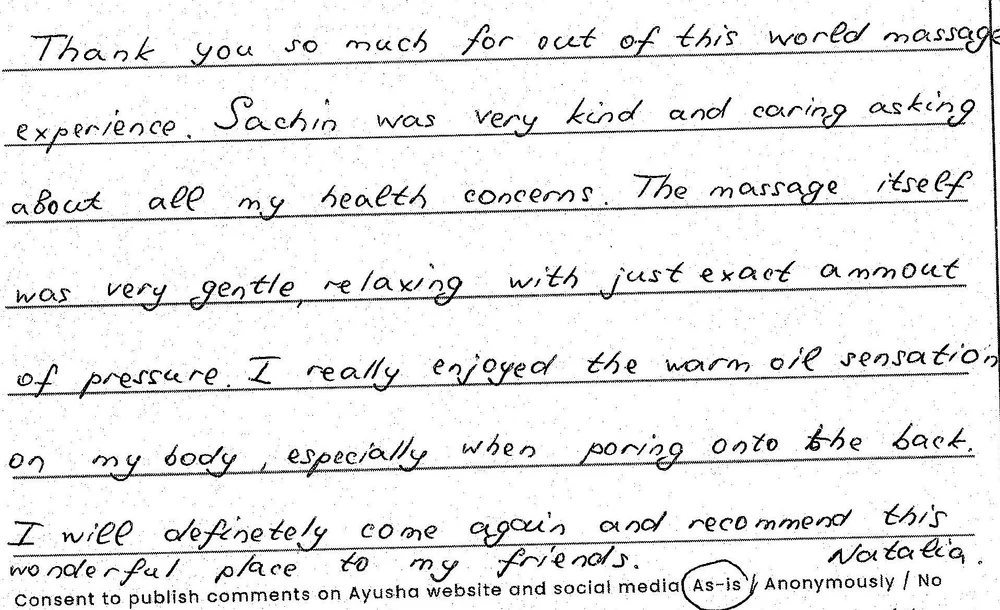 Thank you so much for out of this world massage
experience. Sachin was very kind and caring asking
about all my health concerns. The massage itself
was very gentle, relaxing with just exact ammout
of pressure. I really enjoyed the warm oil sensation
on my body, especially when poring onto the back.
I will definetely come again and recommend this
wonderful place to my friends. Natalia.
Consent to publish comments on Ayusha website and social media As-is / Anonymously / No